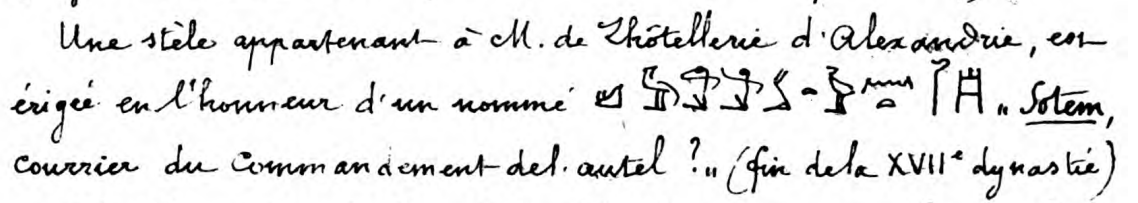 Une stèle appartenant à M. de Lhôtellerie d'Alexandrie, est
érigée en l'honneur d'un nommé „ Sotem,
courrier du Commandement del. autel ?„ (fin de la XVIIe dynastie)